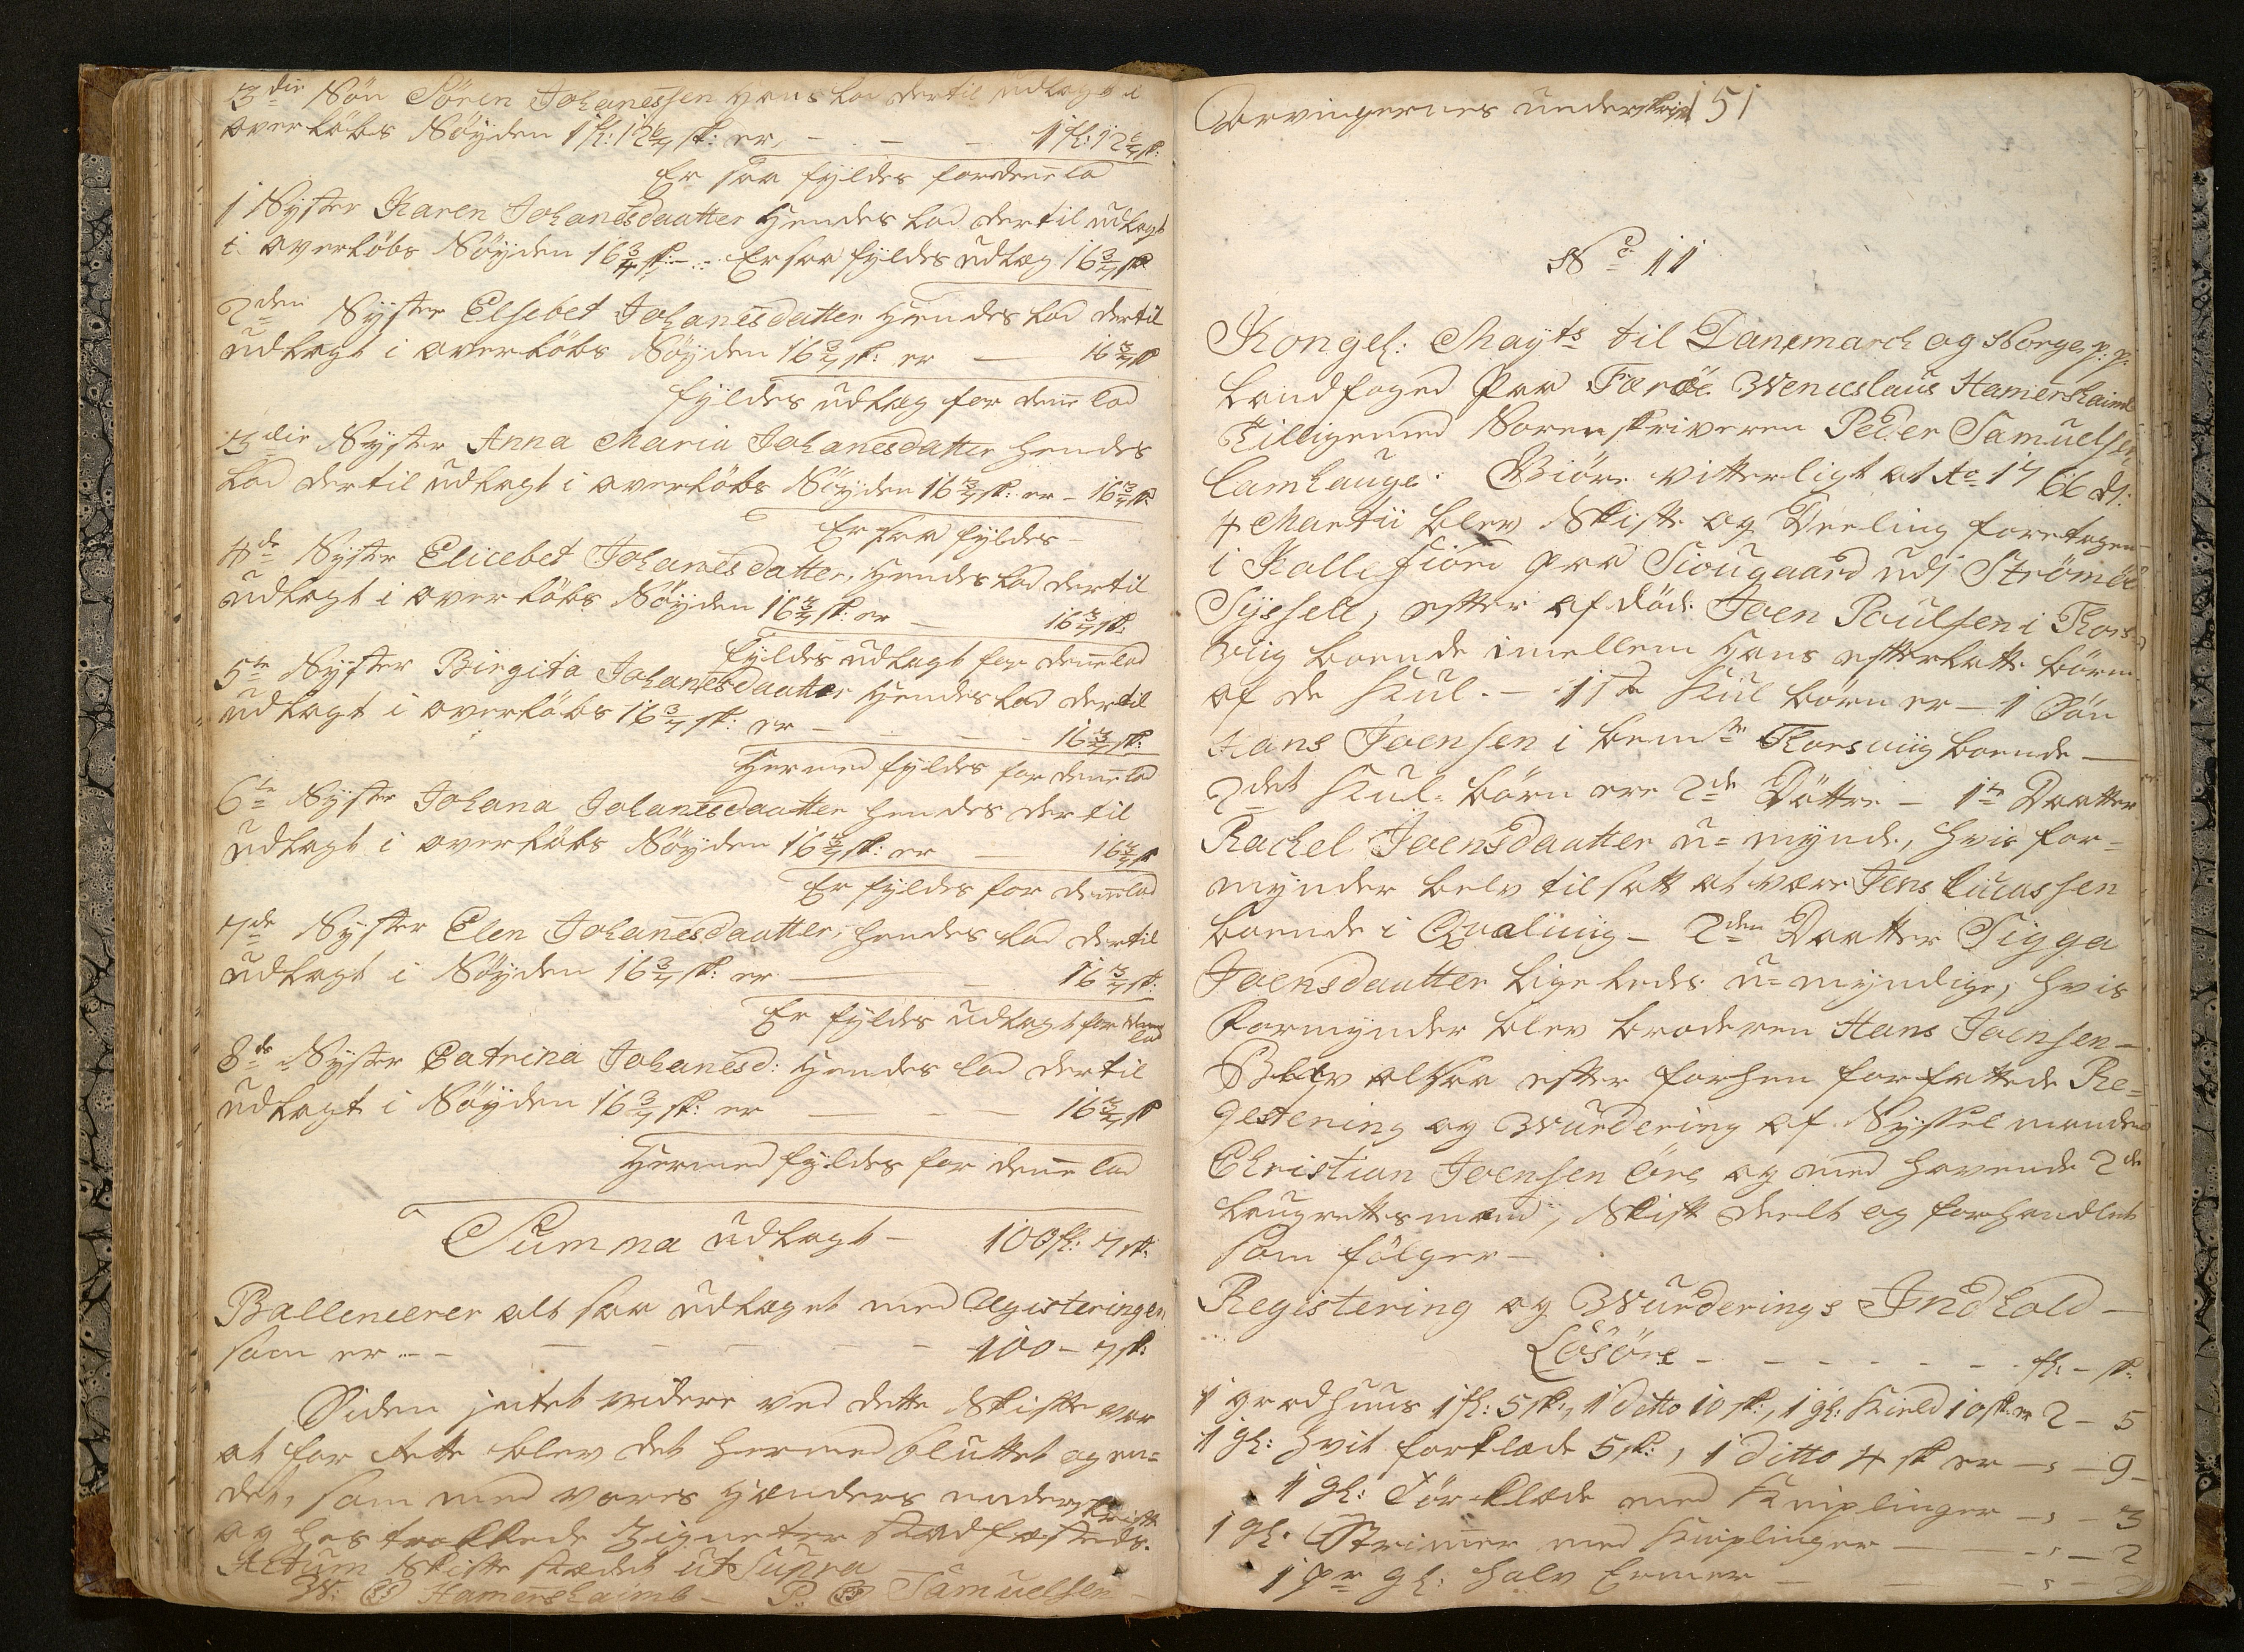 3die Sön Sören Johanessen hans lod dertil udlagt i
overlöbs Nöyden 1 fl: 12 6/7 sk: er - - - 1 fl: 12 6/7 sk:
Er saa fyldes for denne lod
1 Syster Karen Johanesdaatter hendes lod dertil udlagt
i overlöbs Nöyden 16 3/7 sk: - Er saa fyldes udlæg 16 3/7 sk
2den Syster Elsebet Johanesdatter hendes lod dertil
udlagt i overlöbs Nöyden 16 3/7 sk: er — 16 3/7 sk
fyldes udlæg for denne lod
3die Syster Anna Maria Johanesdatter hendes
lod dertil udlagt i overlöbs Nöyden 16 3/7 sk: er - 16 3/7 sk
Er saa fyldes -
4de Syster Elicebet Johanesdatter, hendes lod dertil
udlagt i overlöbs Nöyden 16 3/7 sk: er — 16 3/7 sk:
fyldes udlagt for denne lod
5te Syster Birgita Johanesdaatter hendes lod dertil
udlagt i overlöbs 16 3/7 sk: er - - - 16 3/7 sk:
Hermed fyldes for denne lod
6te Syster Johana Johanesdaatter hendes der til
udlagt i overlöbs Nöyden 16 3/7 sk: er — 16 3/7 sk
Er fyldes for denne lod
7de Syster Elen Johanesdaatter, hendes lod dertil
udlagt i Nöyden 16 3/7 sk: er — - 16 3/7 sk:
Er fyldes udlagt for denne lod
8de Syster Catrina Johanesd: hendes lod dertil
udlagt i Nöyden 16 3/7 sk: er — - — 16 3/7 sk
Hermed fyldes for denne lod
Summa udlagt - 100 fl: 7 sk:
Ballencerer alt saa udlaget med Registeringen
som er - - — — — — - 100 - 7 sk:
Siden intet videre ved dette Skifte var
at for rette blev det hermed sluttet og en=
det, som med vores hænders underskrift
og hostrøkkede Zigneter stadfæstede.
Actum Skifte stædet ut Supra
W: Hamershaimb - P: Samuelsen -
Arvingernes underskrift 151
No 11
Kongel: Mayts til Danemarck og Norge p: p:
landfoged paa Færöe Wenceslaus Hamershaimb
Tilligemed Sorenskriveren Peder Samuelsen
Lamhauge. Giöre vitterligt at Ao 1766 d:
4 Martii blev Skifte og Deeling foretagen
i Kallefiord paa Siougaard udj Strömöe
Syssell, efter afdöde Joen Poulsen i Thors
viig boende imellem hans efterlatte börn
af de kul. - 1ste Kul börn er - 1 Sön
Hans Joensen i bemte Thorsviig boende —
2det Kul= börn ere 2de Döttre - 1te Daatter
Rachel Joensdaatter u= mynd., hvis for=
mynder belv tilsatt at være Jens Lucassen
boende i Qualviig - 2den Daatter Sigga
Joensdaatter ligeleds u= myndige, hvis
formynder blev broderen Hans Joensen -
Blev altsaa efter forhen forfattede Re=
gestering og Wurdering af Syssel manden
Christian Joensen Öre og med havende 2de
laugrettsmænd, Skift deelt og forhandlet
som fölger -
Registering og Wurderings Indhold —
Lösöre - - - - - - - fl: - sk:
1 gradhuus 1 fl: 5 sk:, 1 ditto 10 sk:, 1 gl: Kield 10 sk er 2 - 5
1 gl: hvit forklæde 5 sk:, 1 ditto 4 sk er - , - 9 -
1 gl: Törklæde med Kniplinger - , - 3
1 gl: Strimer med Kniplinger — - , - 2
1 pr gl: halv Ermer - — - , - 2